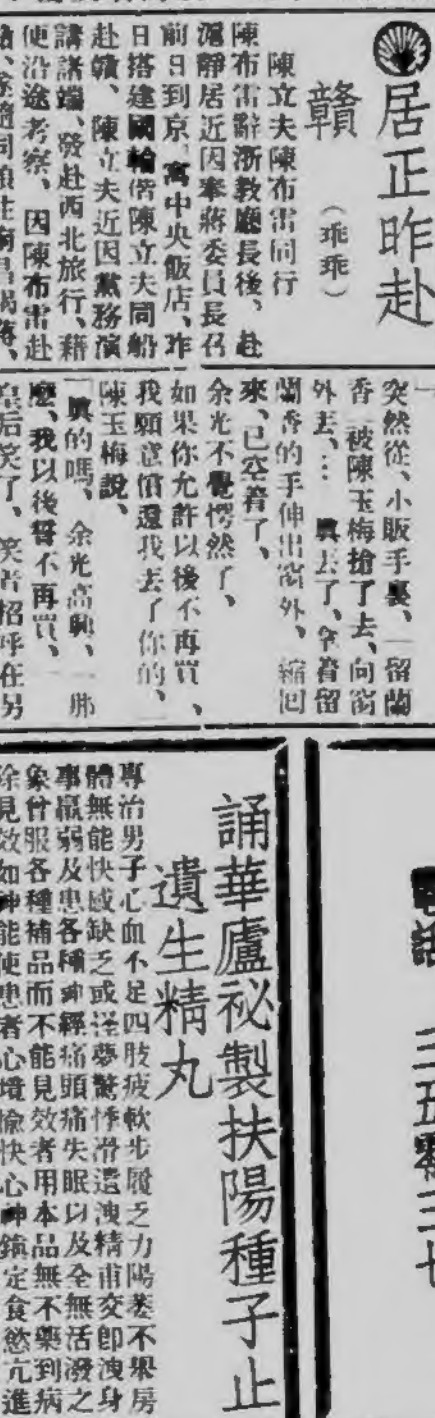 居正昨赴
贛
（乖乖）
陳立夫陳布雷同行
陳布雷辭浙教廳長後、赴
滬靜居近因奉蔣委員長召
前日到京、寓中央飯店、昨
日搭建國輪偕陳立夫同船
赴贛、陳立夫近因黨務演
講諸端、發赴西北旅行、藉
便沿途考察、因陳布雷赴
突然從、小販手裏、一留蘭
香 被陳玉梅搶了去、向窗
外丟、… 興去了、拿着留
蘭香的手伸出窗外、縮回
來、已空着了、
余光不覺愕然了、
如果你允許以後不再買、
我願意償還我丟了你的、
陳玉梅說、
「真的嗎、余光高興、一
麼、我以後誓不再買、
皇后笑了、笑着招呼在另
誦華廬祕製扶陽種子止
遺生精丸
專治男子心血不足四肢疲軟步履乏力陽萎不舉房
體無能快感缺乏或怪夢驚悸滑遺洩精甫交即洩身
事羸弱及患各種神經痛頭痛失眠以及全無活潑之
象曾服各種補品而不能見效者用本品無不藥到病
除見效如神能使患者心境愉快心神鎮定食慾亢進
電話 三五零三七